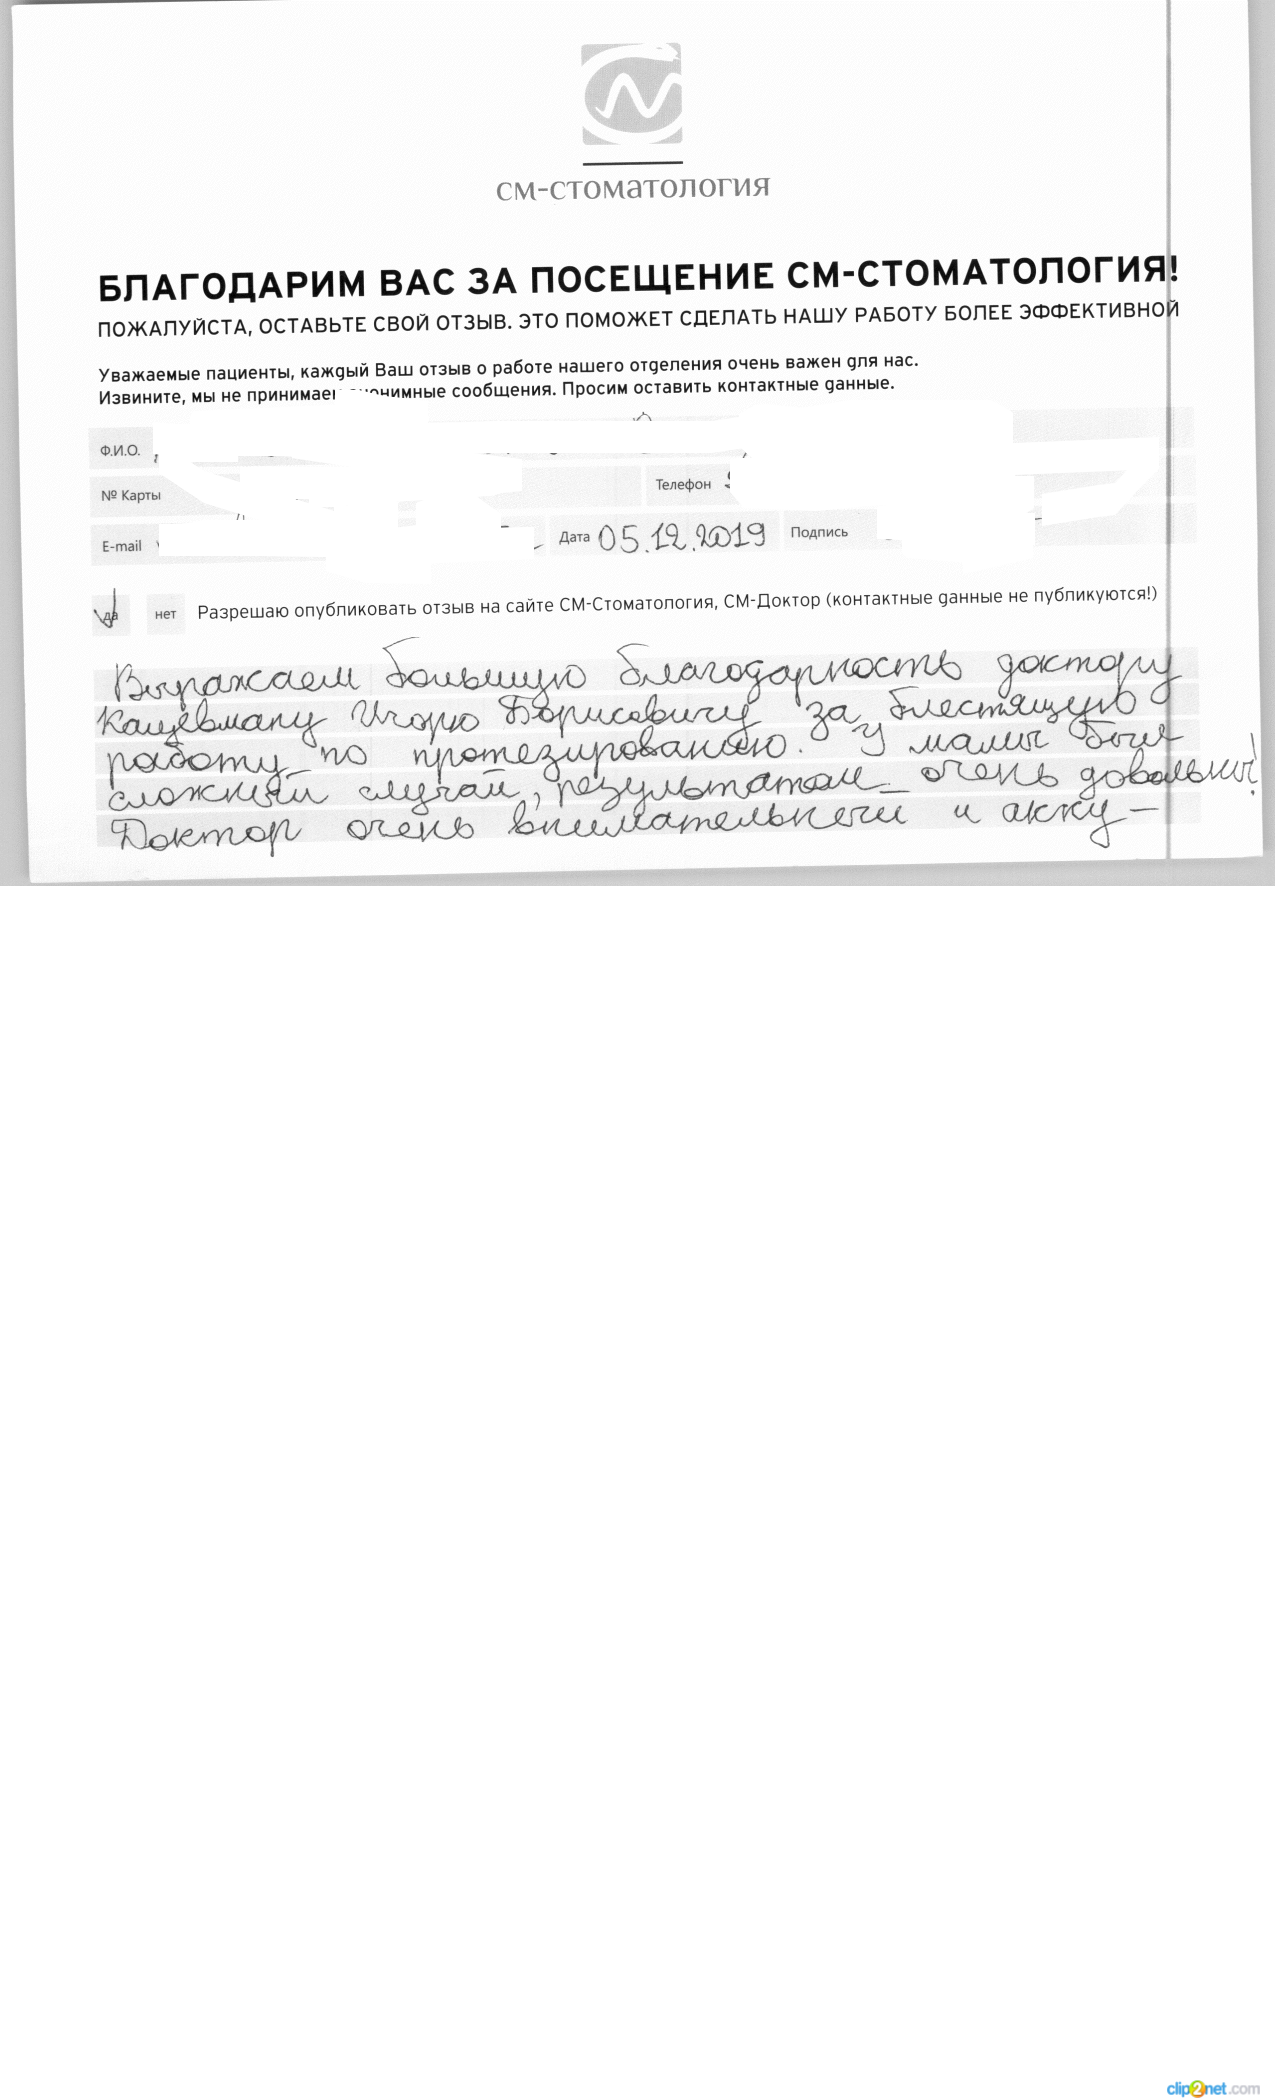 см-стоматология
БЛАГОДАРИМ ВАС ЗА ПОСЕЩЕНИЕ СМ-СТОМАТОЛОГИЯ!
ПОЖАЛУЙСТА, ОСТАВЬТЕ СВОЙ ОТЗЫВ. ЭТО ПОМОЖЕТ СДЕЛАТЬ НАШУ РАБОТУ БОЛЕЕ ЭФФЕКТИВНОЙ
Уважаемые пациенты, каждый Ваш отзыв о работе нашего отделения очень важен для нас.
Извините, мы не принимаем анонимные сообщения. Просим оставить контактные данные.
Ф.И.О.
№ Карты Телефон
E-mail Дата 05.12.2019 Подпись
да нет Разрешаю опубликовать отзыв на сайте СМ-Стоматология, СМ-Доктор (контактные данные не публикуются!)
Выражаем большую благодарность доктору
Игорю Борисовичу за блестящую
работу по протезированию. У мамы был
сложный случай, результатом очень довольны!
Доктор очень внимательный и акку-
clip2net.com